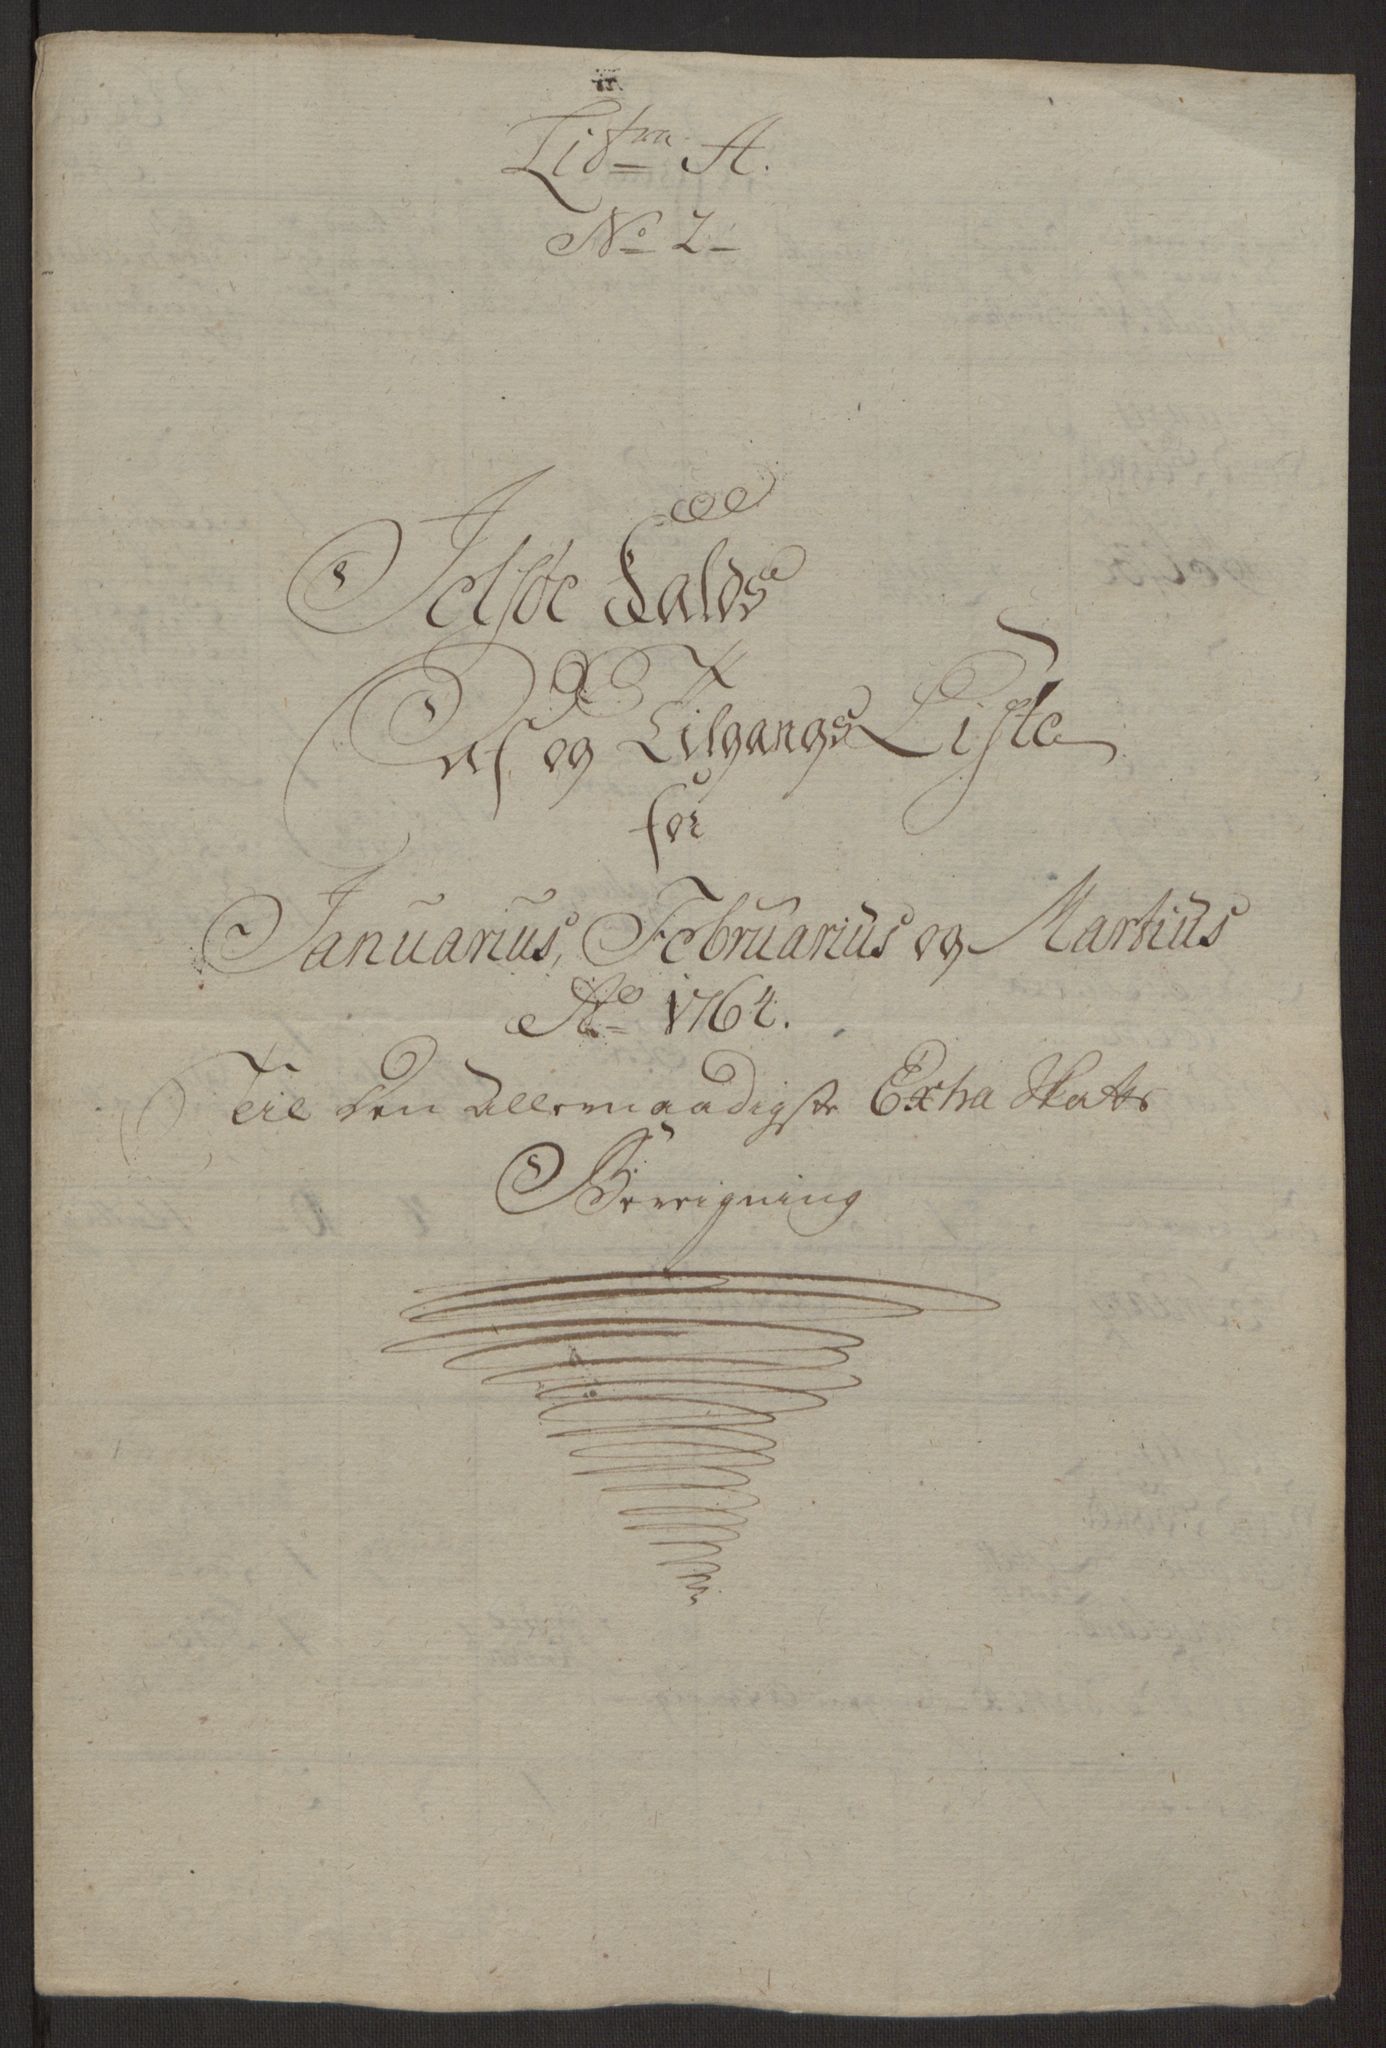 Lit^ra A.
No 2
Jelsøe Falds
Af og Tilgangs Liste
for
Januarius, Februarius og Martius
Ao 1764.
Til den allernaadigste Extra Skatts
Bereigning